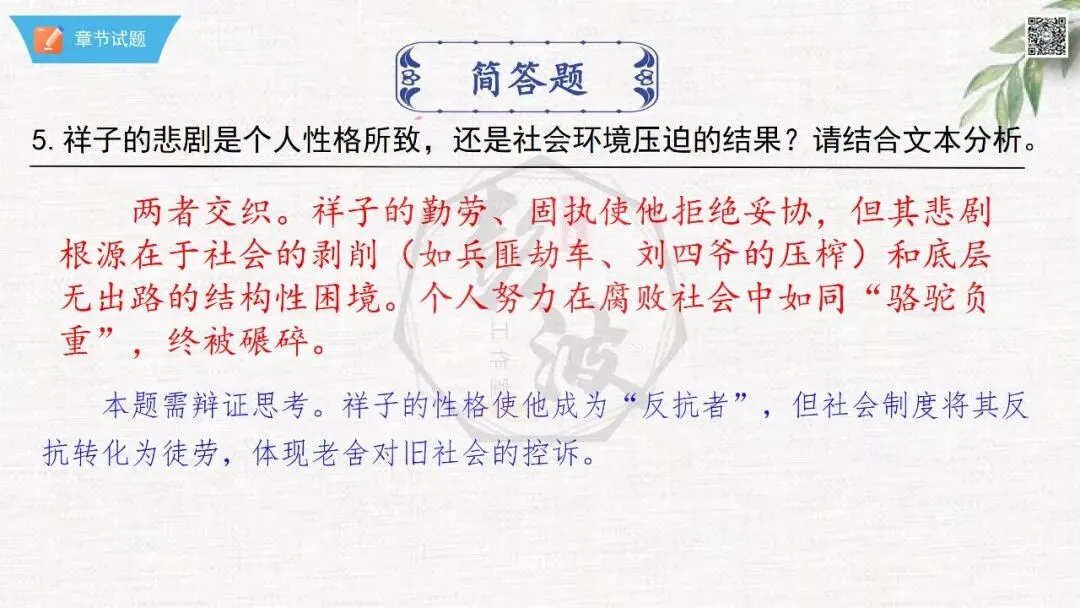 章节试题
简答题
5. 祥子的悲剧是个人性格所致，还是社会环境压迫的结果？请结合文本分析。
两者交织。祥子的勤劳、固执使他拒绝妥协，但其悲剧
根源在于社会的剥削（如兵匪劫车、刘四爷的压榨）和底层
无出路的结构性困境。个人努力在腐败社会中如同“骆驼负
重”，终被碾碎。
本题需辩证思考。祥子的性格使他成为“反抗者”，但社会制度将其反
抗转化为徒劳，体现老舍对旧社会的控诉。